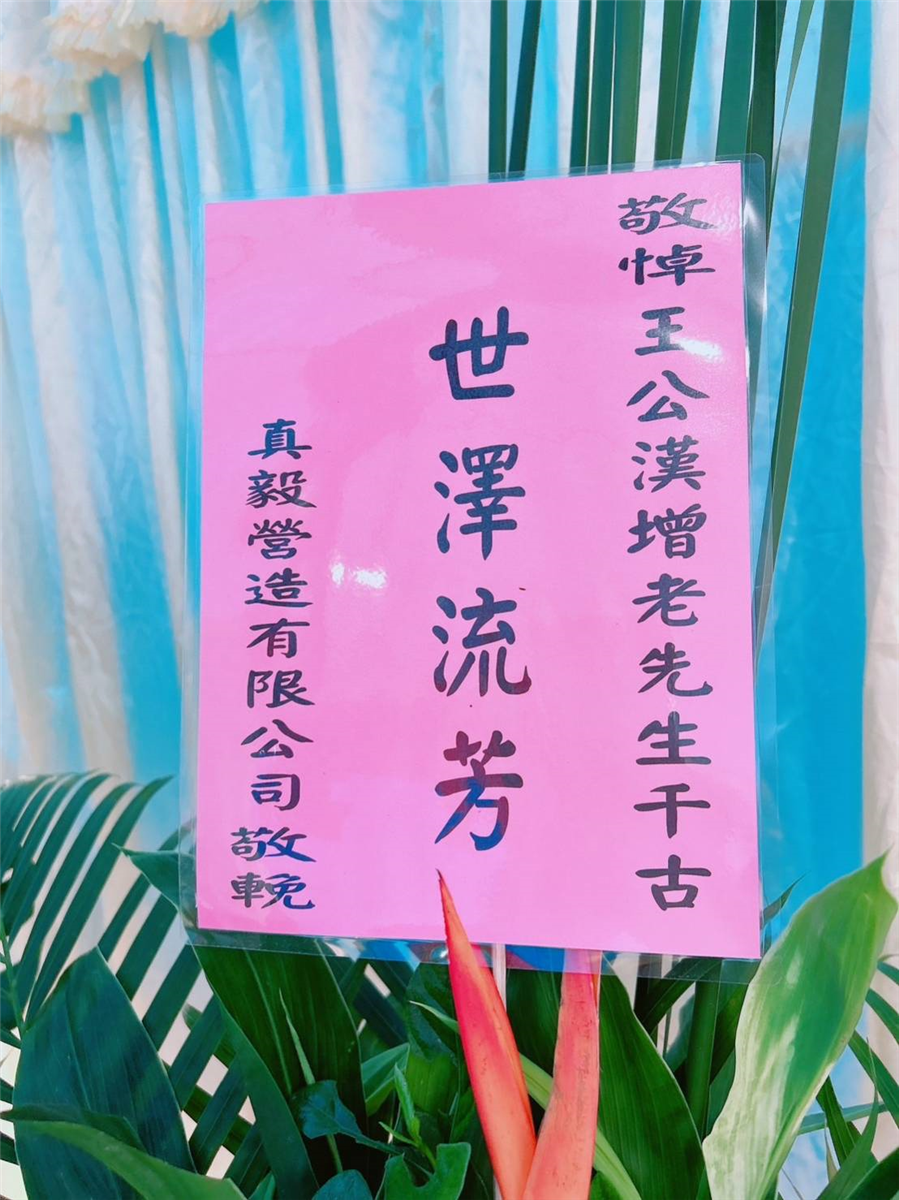 敬悼王公漢增老先生千古
世澤流芳
真毅營造有限公司敬輓